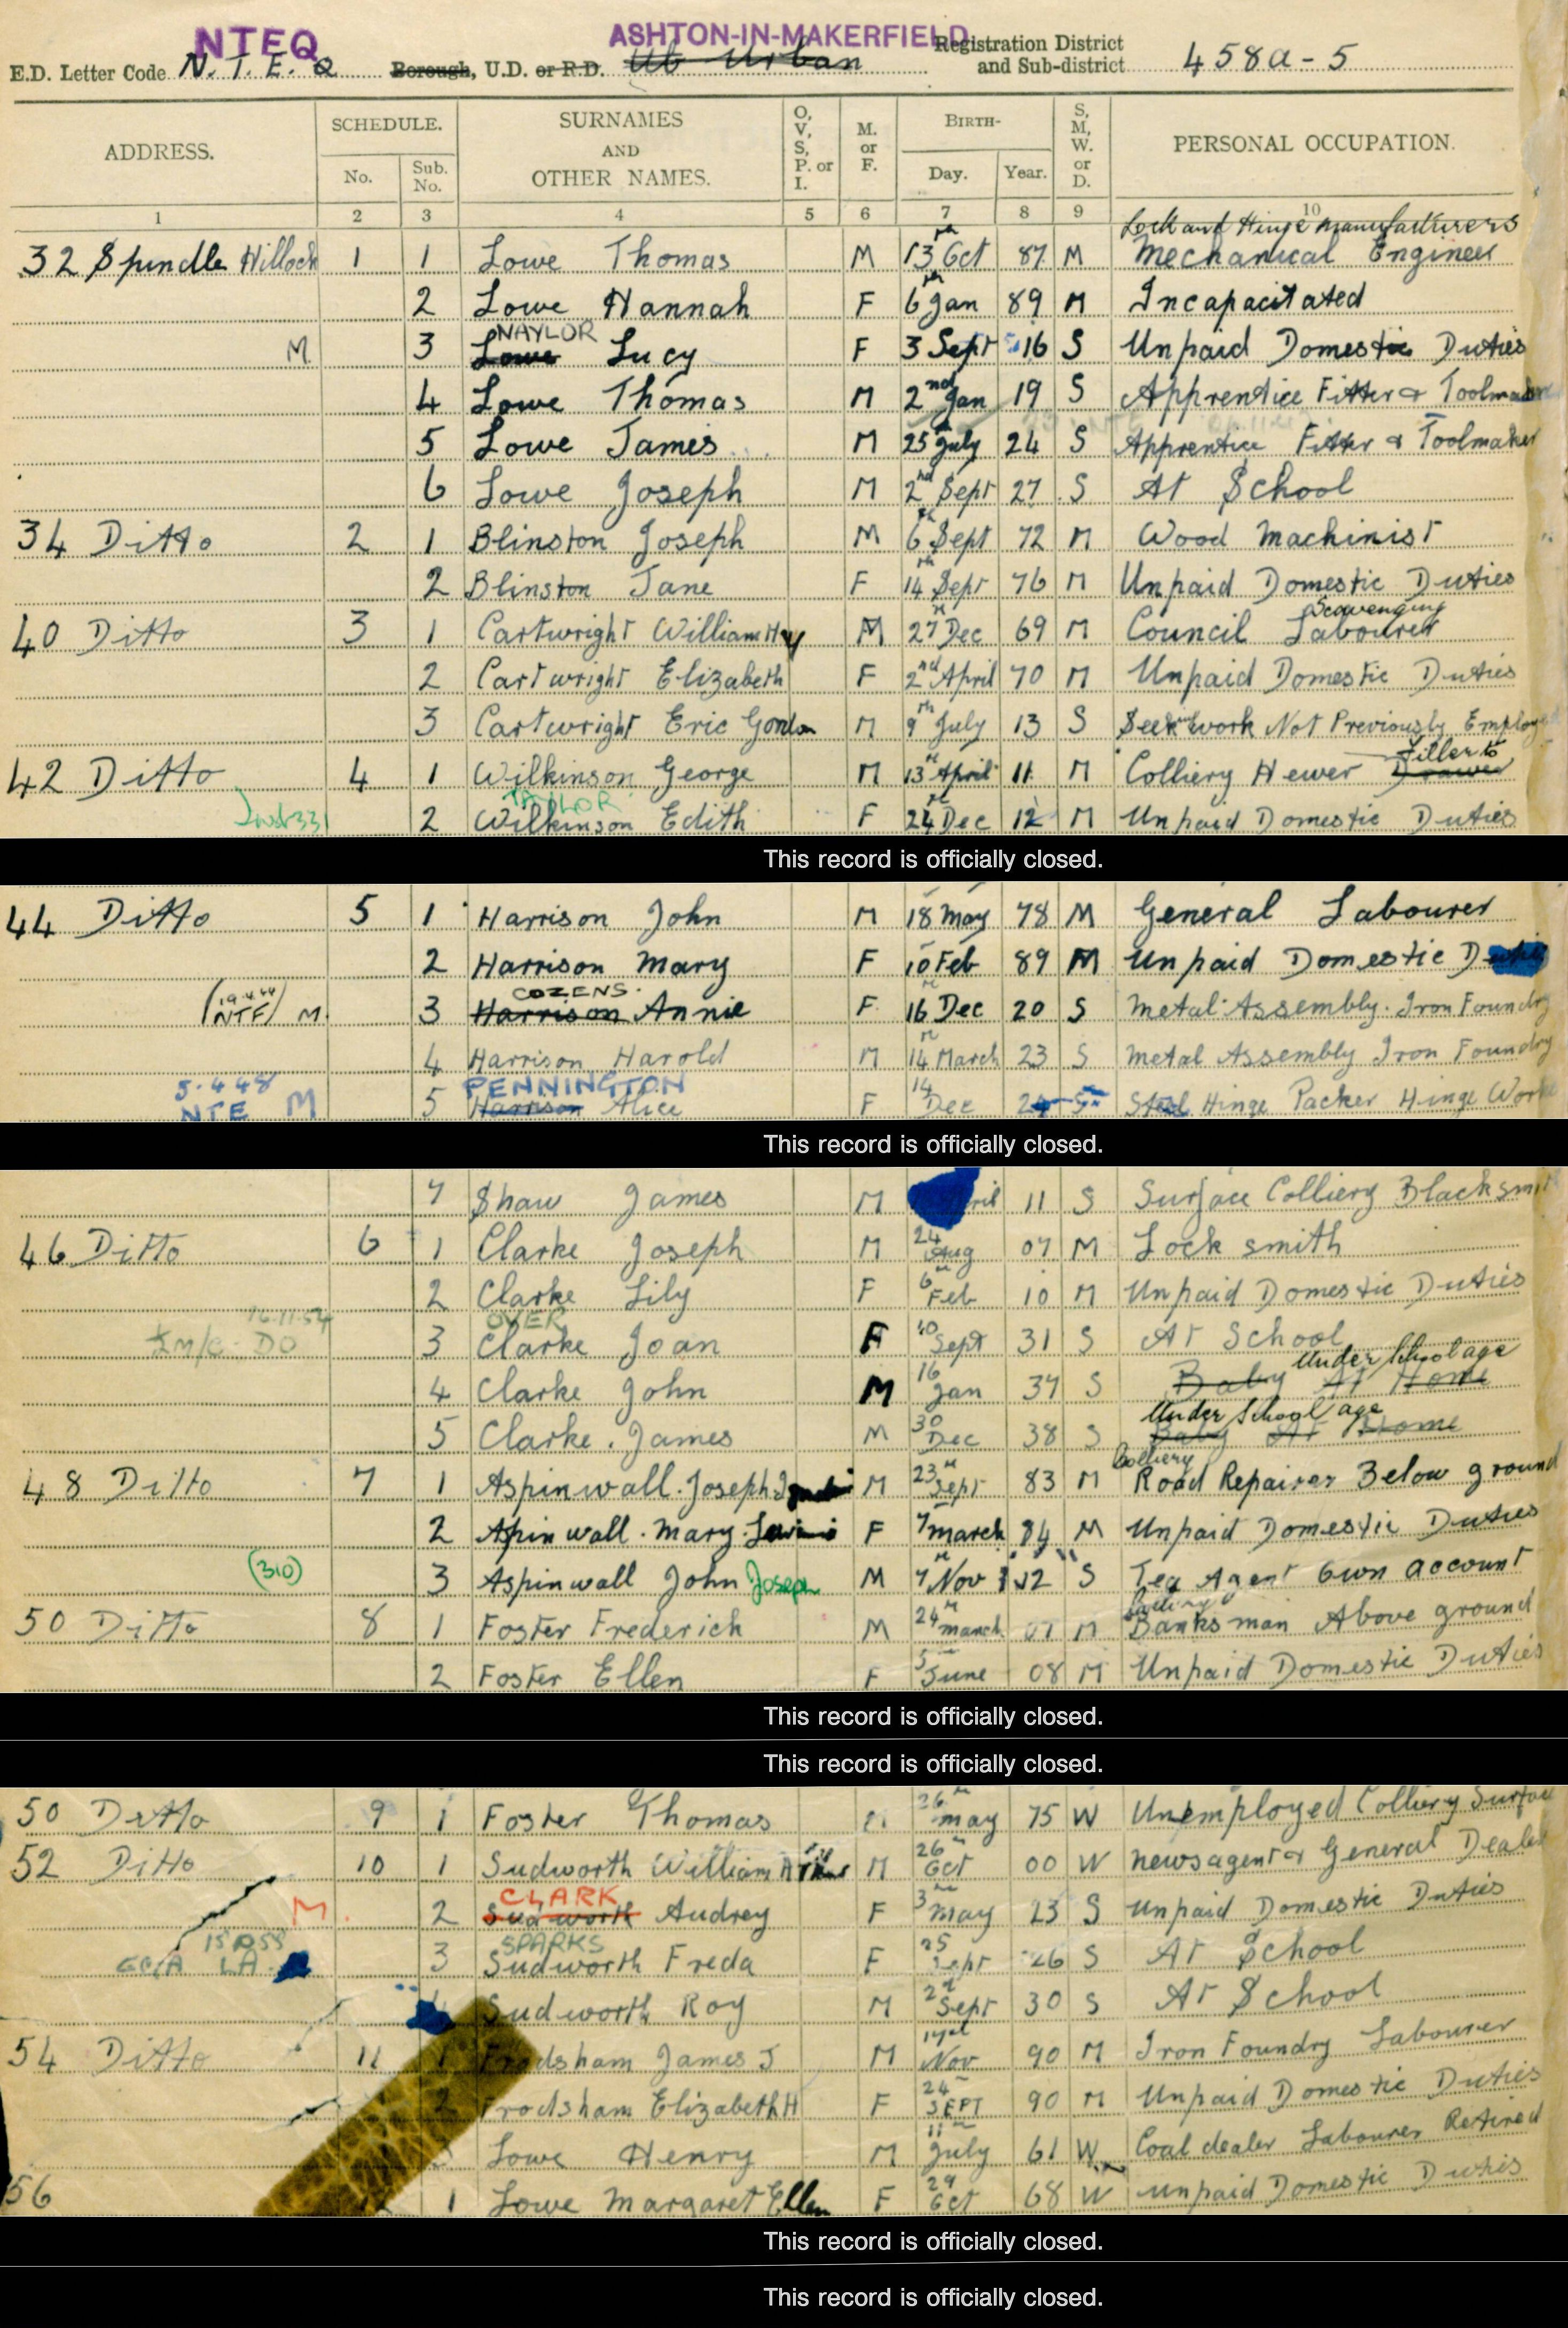 NTEQ ASHTON-IN-MAKERFIELD
E.D. Letter Code N. T. E. Q Borough, U.D. or R.D. Urban Registration District and Sub-district 458a - 5
ADDRESS. SCHEDULE. No. Sub. No. SURNAMES AND OTHER NAMES. O, V, S, P. or I. M. or F. BIRTH- Day. Year. S, M, W. or D. PERSONAL OCCUPATION.
1 2 3 4 5 6 7 8 9 10
Lock and Hinge manufacturers
32 Spindle Hillock 1 1 Lowe Thomas M 13th Oct 87 M Mechanical Engineer
2 Lowe Hannah F 6th Jan 89 M Incapacitated
NAYLOR
M 3 Lowe Lucy F 3 Sept 16 S Unpaid Domestic Duties
4 Lowe Thomas M 2nd Jan 19 S Apprentice Fitter & Toolmaker
5 Lowe James M 25 July 24 S Apprentice Fitter & Toolmaker
6 Lowe Joseph M 2nd Sept 27 S At School
34 Ditto 2 1 Blinston Joseph M 6th Sept 72 M Wood Machinist
2 Blinston Jane F 14th Sept 76 M Unpaid Domestic Duties
Scavenging
40 Ditto 3 1 Cartwright William Hy M 27 Dec 69 M Council Labourer
2 Cartwright Elizabeth F 2nd April 70 M Unpaid Domestic Duties
3 Cartwright Eric Gordon M 9th July 13 S Seek work Not Previously Employed
Filler to
42 Ditto 4 1 Wilkinson George M 13th April 11 M Colliery Hewer Drawer
TAYLOR
2 Wilkinson Edith F 24 Dec 12 M Unpaid Domestic Duties
This record is officially closed.
44 Ditto 5 1 Harrison John M 18 May 78 M General Labourer
2 Harrison Mary F 10 Feb 89 M Unpaid Domestic Duties
19.4.44 COZENS.
NTF M. 3 Harrison Annie F 16 Dec 20 S Metal Assembly. Iron Foundry
4 Harrison Harold M 14 March 23 S Metal Assembly Iron Foundry
5.4.48 PENNINGTON
NTE M 5 Harrison Alice F 14 Dec 24 S Steel Hinge Packer Hinge Works
This record is officially closed.
7 Shaw James M April 11 S Surface Colliery Blacksmith
46 Ditto 6 1 Clarke Joseph M 24 Aug 07 M Lock smith
2 Clarke Lily F 6th Feb 10 M Unpaid Domestic Duties
16.11.54 OVER
M/C DO 3 Clarke Joan F 10 Sept 31 S At School
Under School age
4 Clarke John M 16 Jan 37 S Baby At Home
Under School age
5 Clarke James M 30 Dec 38 S Baby At Home
Colliery
48 Ditto 7 1 Aspinwall. Joseph M 23rd Sept 83 M Road Repairer Below ground
2 Apinwall. Mary. F 7 March 84 M Unpaid Domestic Duties
(310) 3 Aspinwall John Joseph M 7 Nov 12 S Tea Agent Own account
50 Ditto 8 1 Foster Frederich M 24th March 07 M Banksman Above ground
2 Foster Ellen F 5 June 08 M Unpaid Domestic Duties
This record is officially closed.
This record is officially closed.
50 Ditto 9 1 Foster Thomas M 26th May 75 W Unemployed Colliery Surface
52 Ditto 10 1 Sudworth William Arthur M 26th Oct 00 W Newsagent & General Dealer
CLARK
M. 2 Sudworth Audrey F 3 May 23 S Unpaid Domestic Duties
SPARKS
LA 3 Sudworth Freda F 25 Sept 26 S At School
Sudworth Roy M 2nd Sept 30 S At School
54 Ditto 11 1 Frodsham James J M Nov 90 M Iron Foundry Labourer
2 Frodsham Elizabeth H F 24 SEPT 90 M Unpaid Domestic Duties
Lowe Henry M 11th July 61 W Coal dealer Labourer Retired
56 12 1 Lowe Margaret Ellen F 29 Oct 68 W Unpaid Domestic Duties
This record is officially closed.
This record is officially closed.